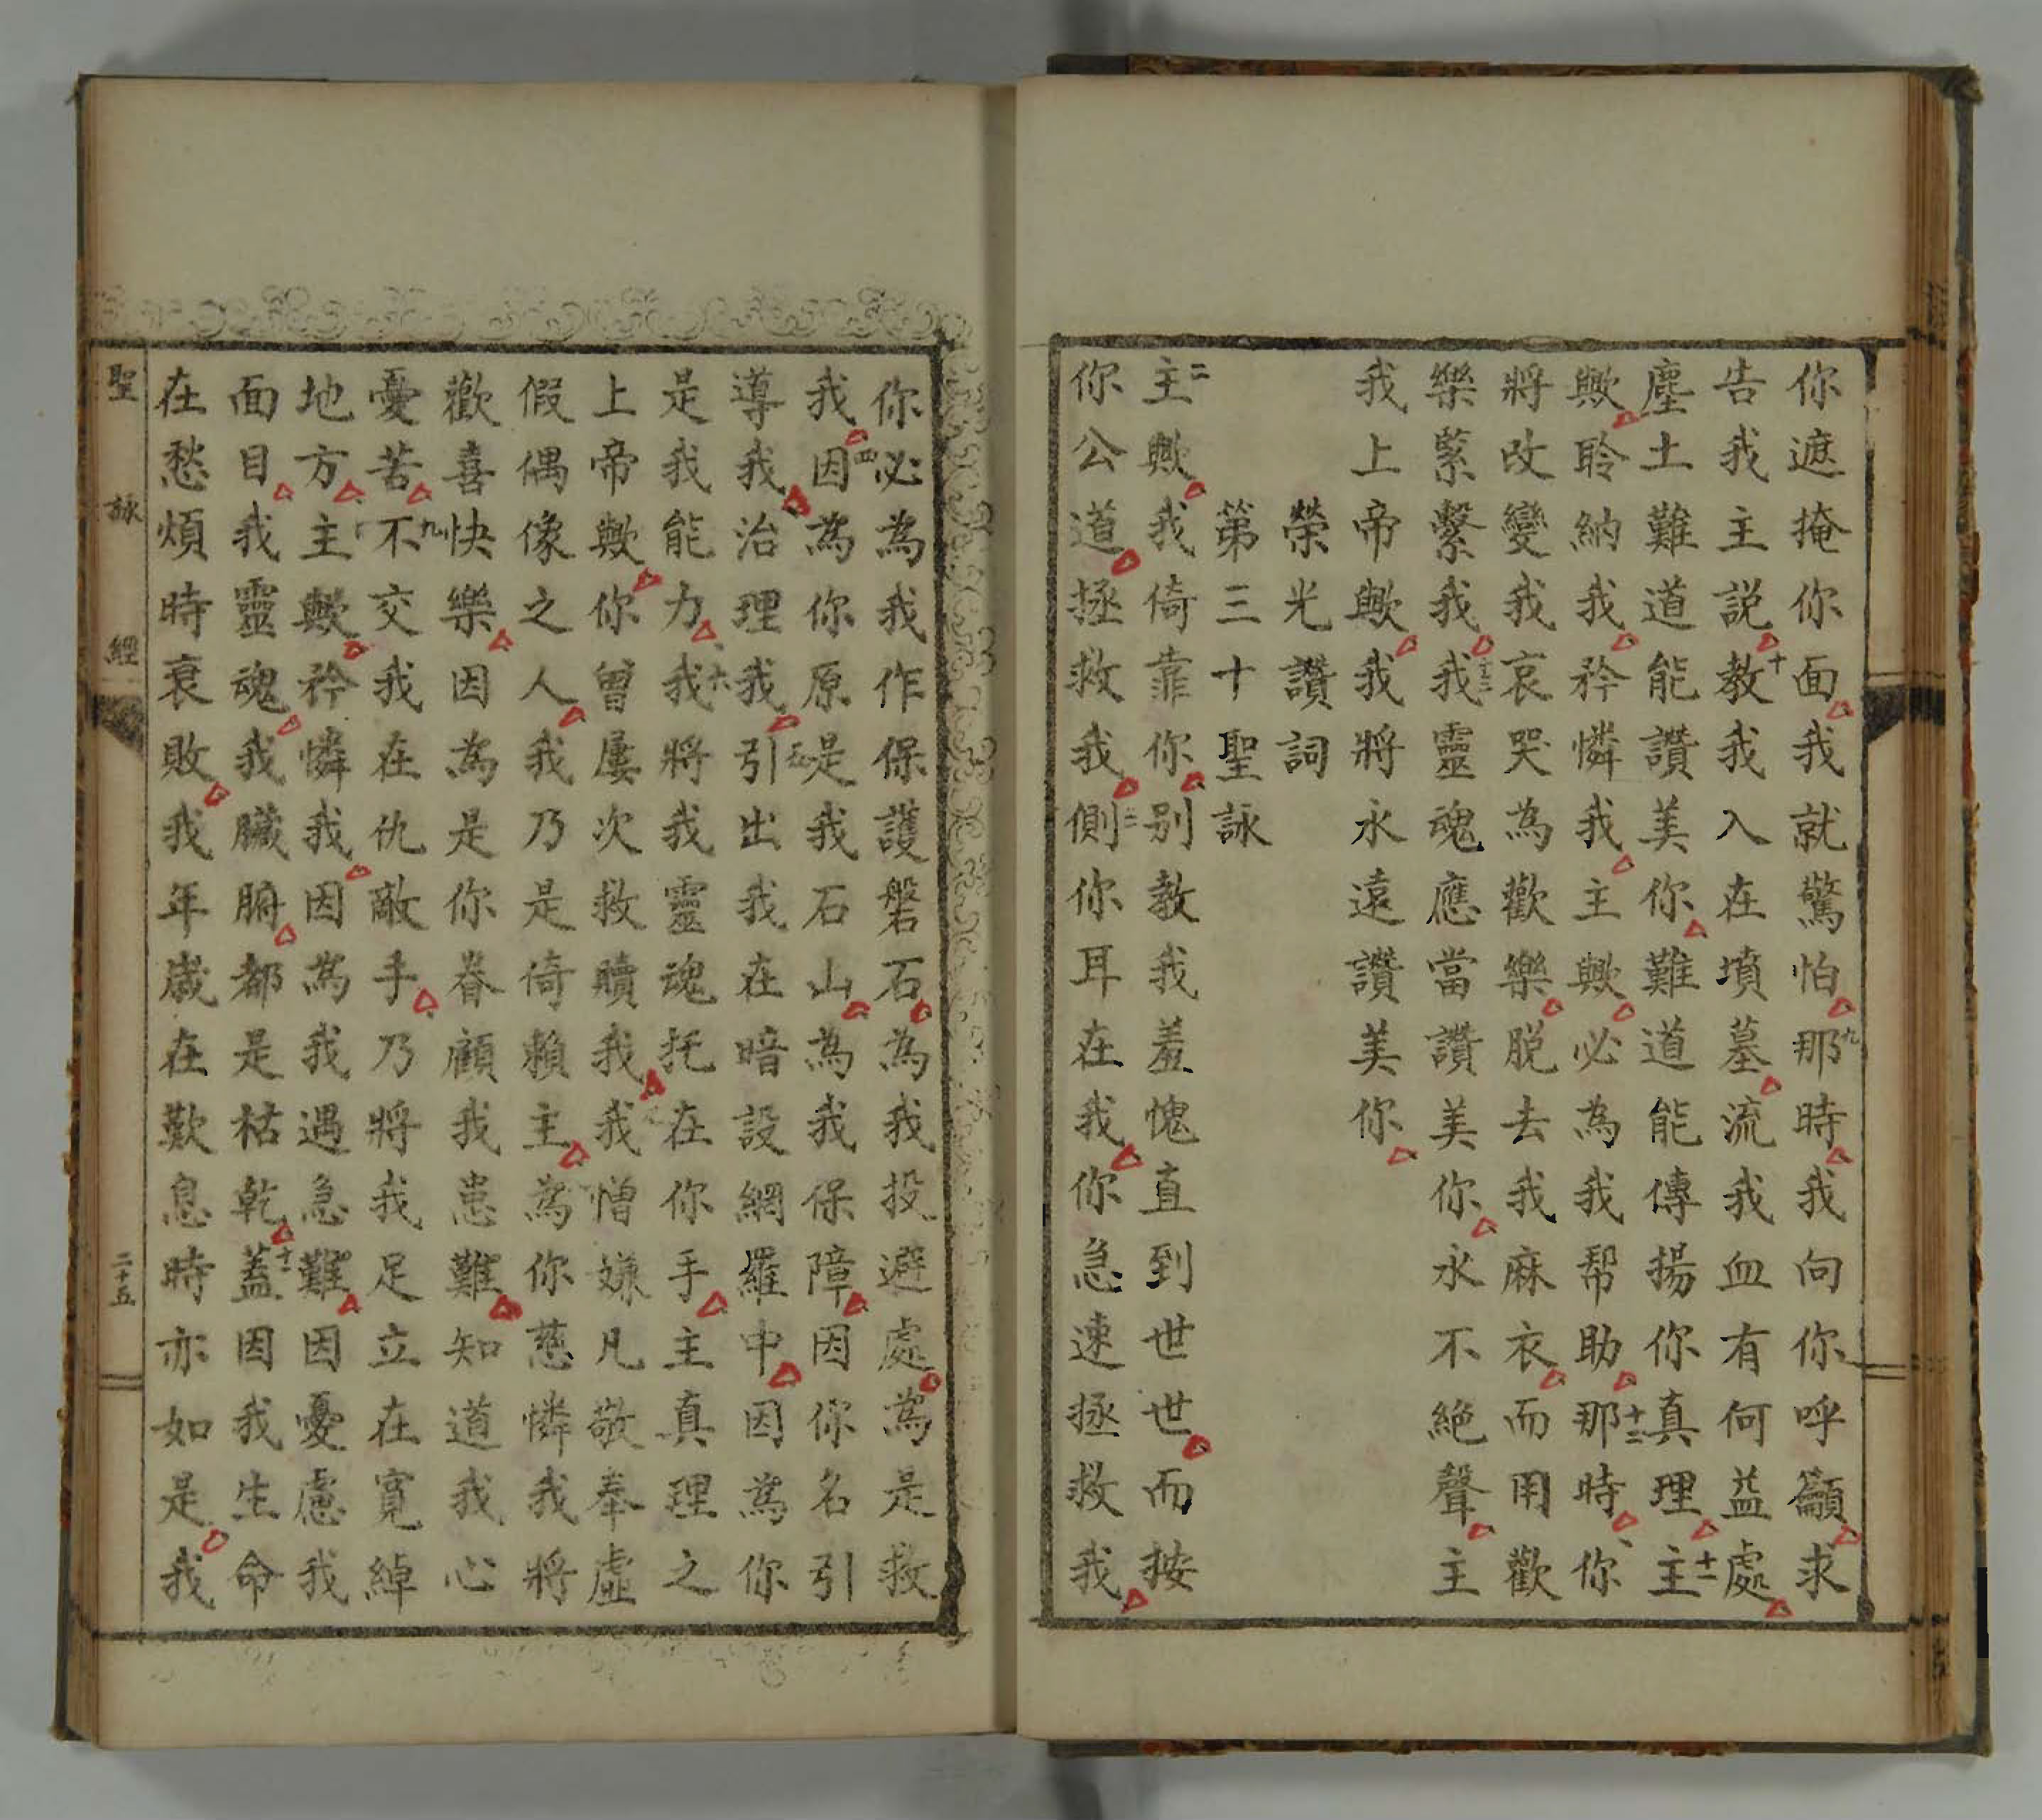 你遮掩你面我就驚怕九那時我向你呼籲求
告我主説十教我入在墳墓流我血有何益處
塵土難道能讚美你難道能傳揚你真理十一主
歟聆納我矜憐我主歟必為我幫助十二那時你
將改變我哀哭為歡樂脱去我麻衣而用歡
樂縈繫我十三我靈魂應當讚美你永不絶聲主
我上帝歟我將永遠讚美你
榮光讚詞
第三十聖詠
主二歟我倚靠你别教我羞愧直到世世而按
你公道拯救我三側你耳在我你急速拯救我
你必為我作保護磐石為我投避處為是救
我四因為你原是我石山為我保障因你名引
導我治理我五引出我在暗設網羅中因為你
是我能力六我將我靈魂托在你手主真理之
上帝歟你曾屢次救贖我我憎嫌凡敬奉虛
假偶像之人我乃是倚賴主為你慈憐我將
歡喜快樂因為是你眷顧我患難知道我心
憂苦九不交我在仇敵手乃將我足立在寬綽
地方主歟矜憐我因為我遇急難因憂慮我
面目我靈魂我臟腑都是枯乾十一蓋因我生命
在愁煩時衰敗我年歲在歎息時亦如是我
聖詠經
二十五